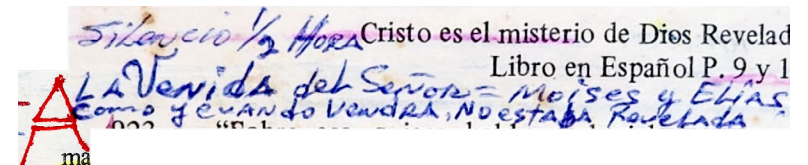 Silencio 1/2 Hora Cristo es el misterio de Dios Revelad
Libro en Español P. 9 y 1
La Venida del Señor = Moises y Elías
Como y cuando vendra, No estaba Revelada
A
ma